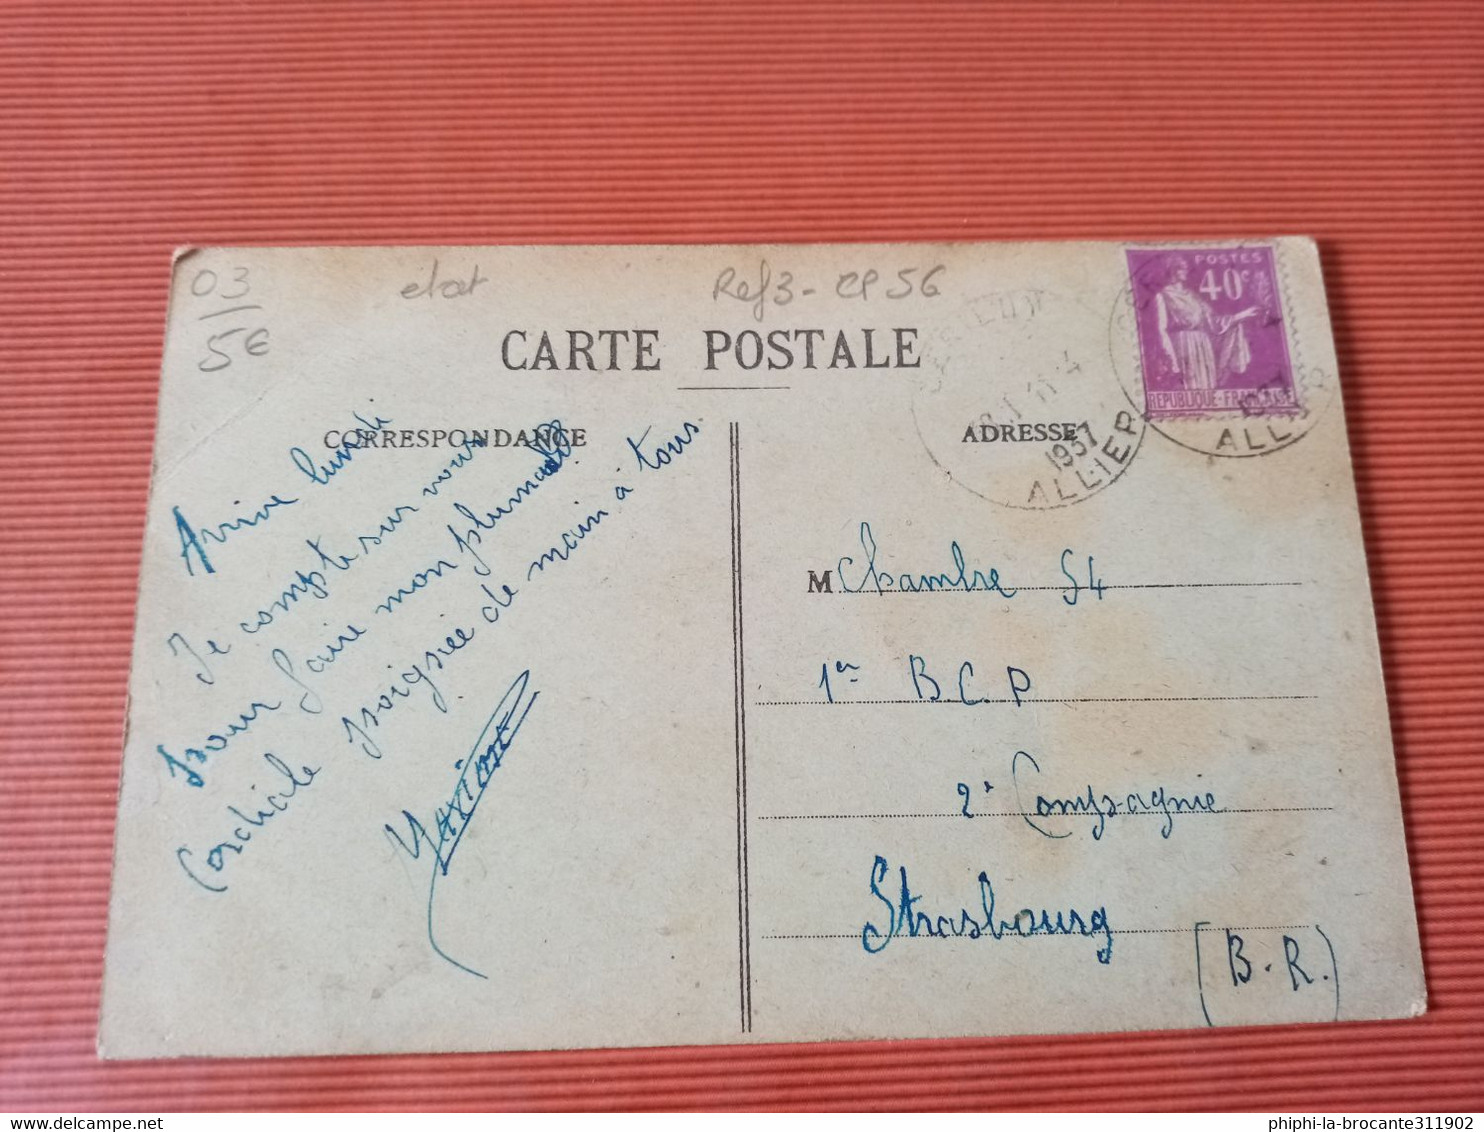 03
5€
état
Ref 3 - CP 56
POSTES
40c
REPUBLIQUE-FRANÇAISE
CARTE POSTALE
1937
ALLIER
ALLIER
CORRESPONDANCE
ADRESSE
Arrive lundi
Je compte sur vous
pour faire mon plumard
Cordiale poignée de main à tous.
M Chambre 54
1er B.C.P
2e Compagnie
Strasbourg
(B.R.)
delcampe.net
phiphi-la-brocante311902